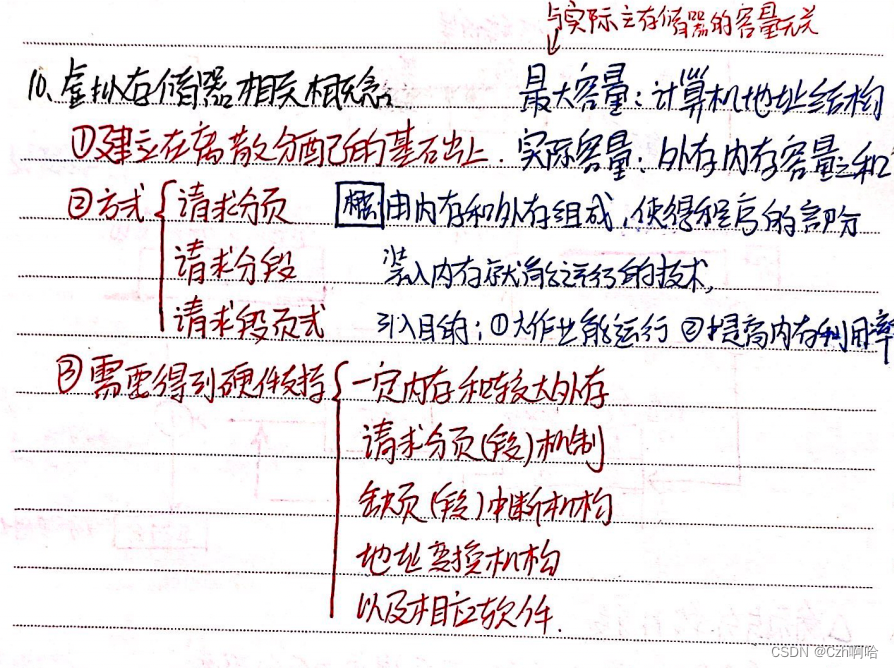 与实际主存储器的容量无关
10、虚拟存储器相关概念 最大容量：计算机地址结构
①建立在离散分配的基础上. 实际容量：外存内存容量之和
②方式 请求分页 概念 由内存和外存组成，使得程序的部分
请求分段 装入内存就能运行的技术，
请求段页式 引入目的：①大作业能运行 ②提高内存利用率
③需要得到硬件支持 一定内存和较大外存
请求分页(段)机制
缺页(段)中断机构
地址变换机构
以及相应软件.
CSDN @Czh啊哈